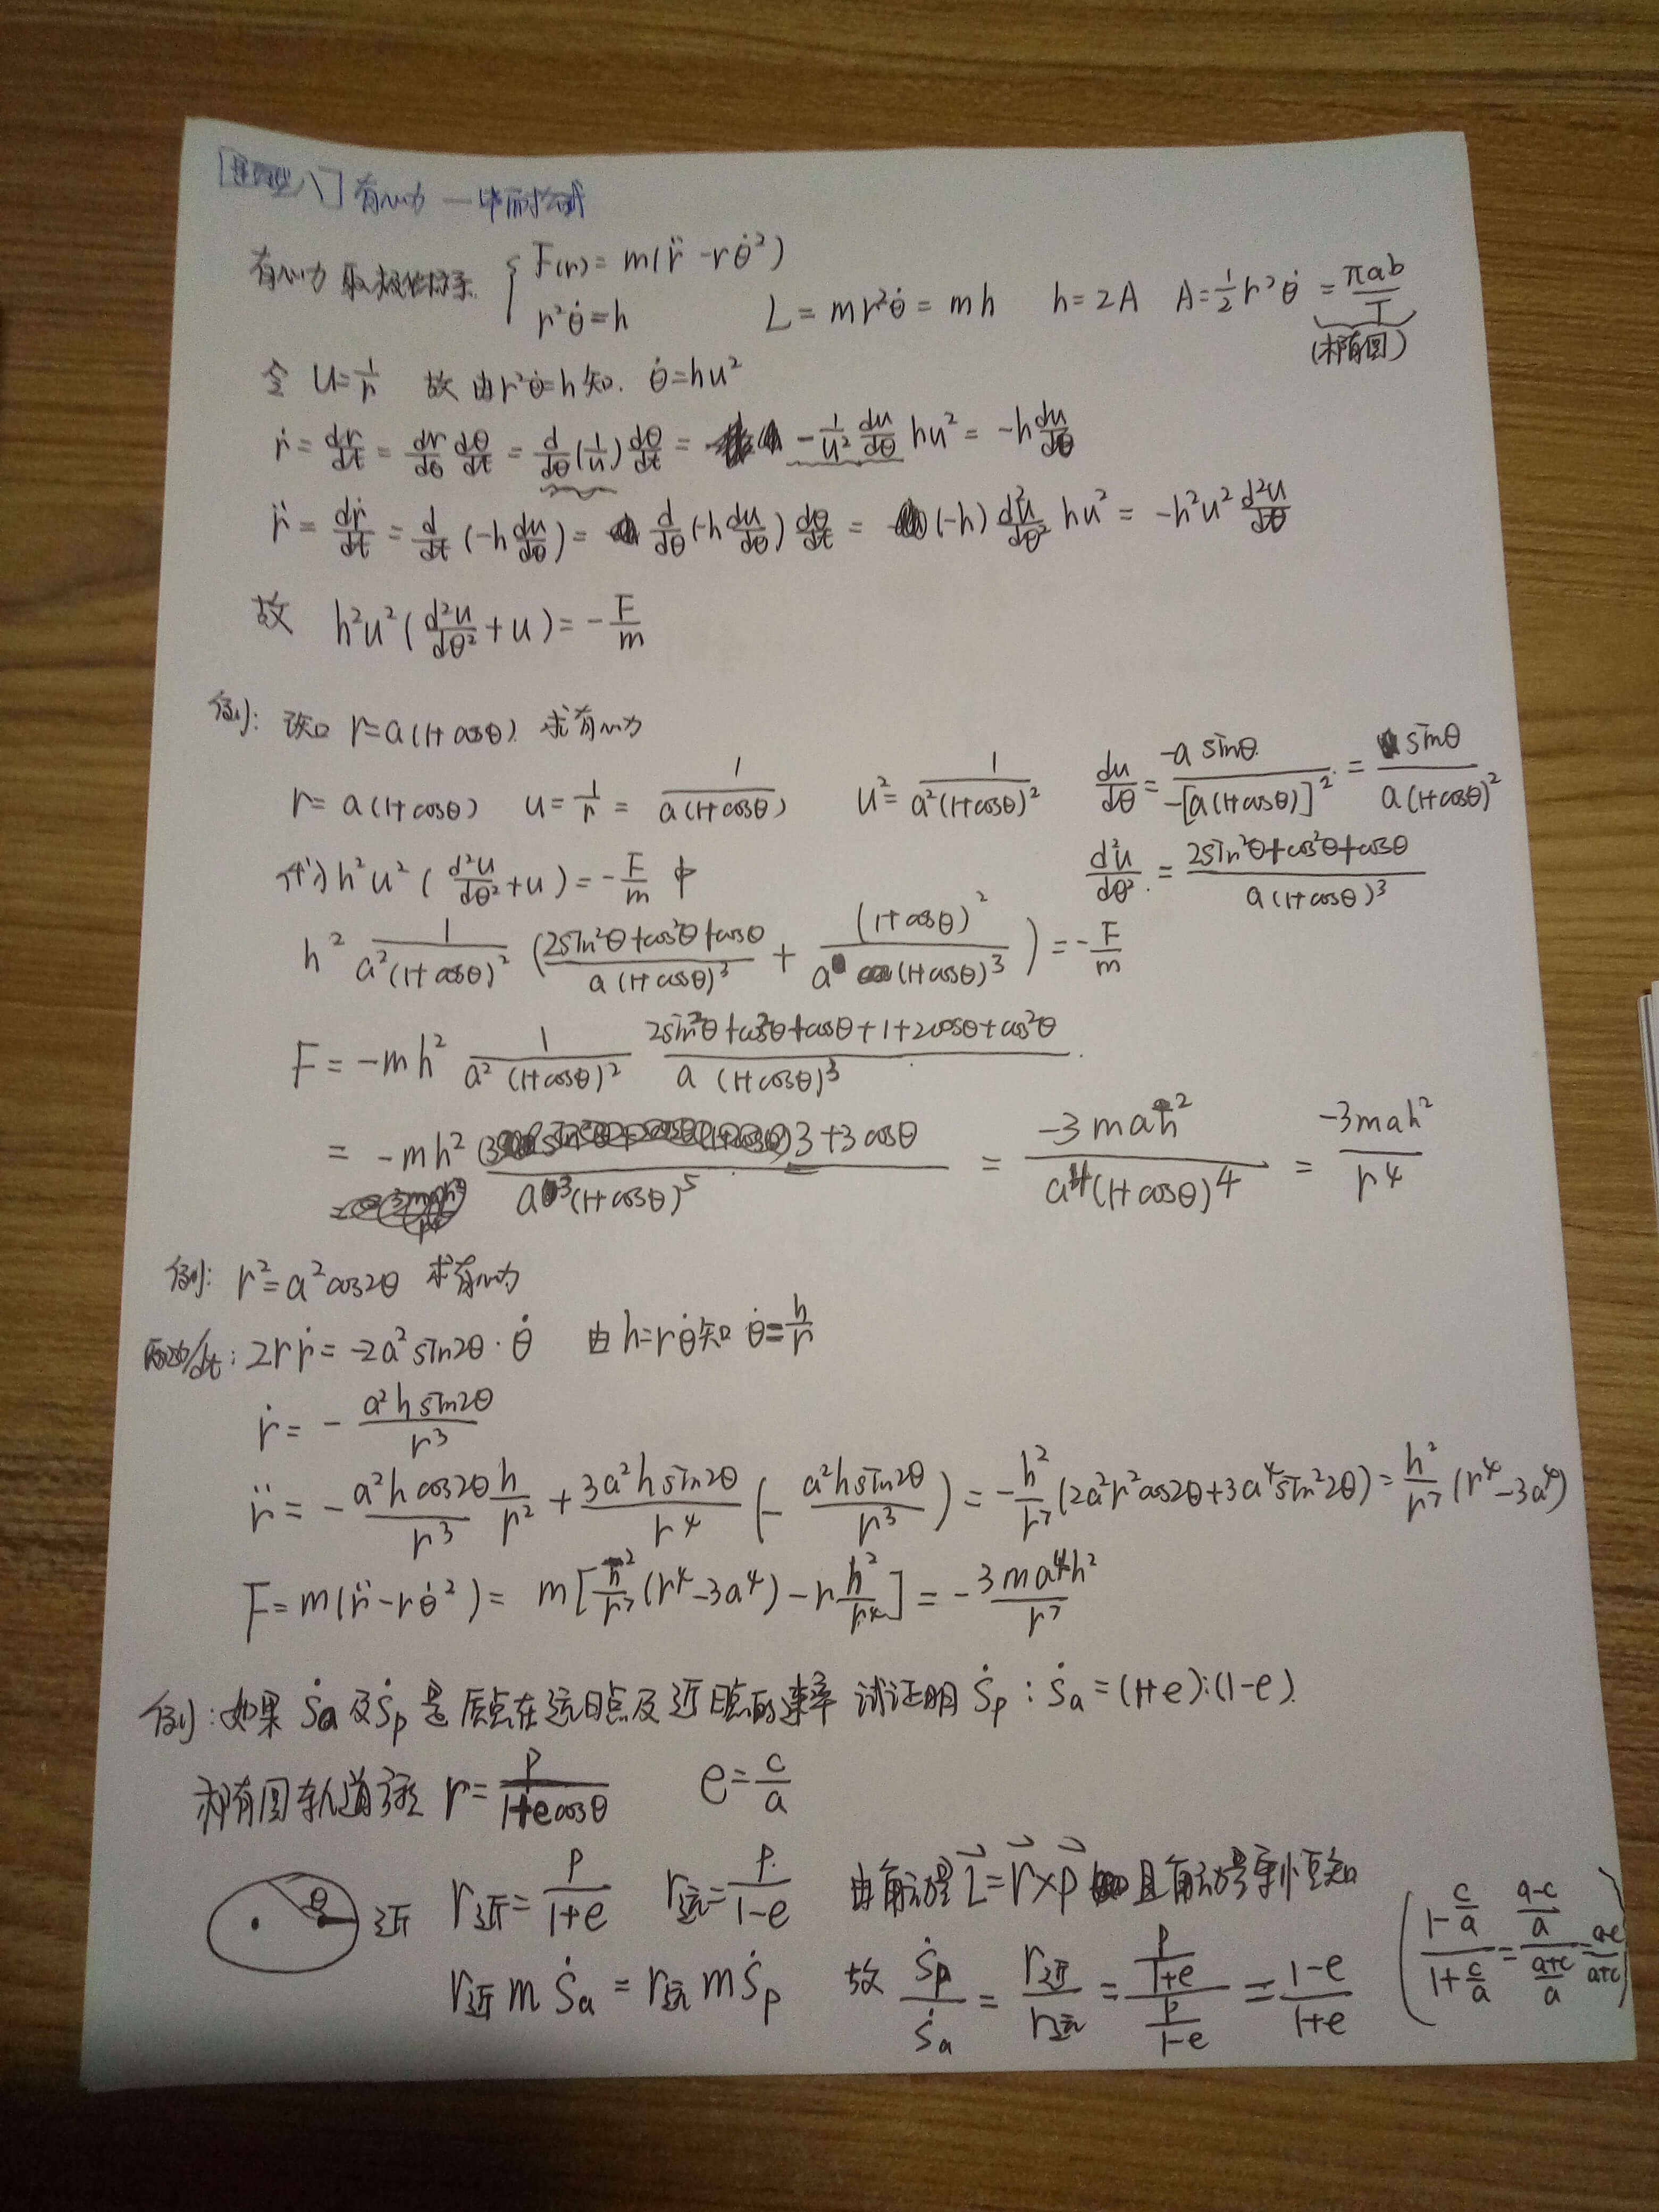 [题型八] 有心力—比耐公式
有心力 取极坐标系 { F(r) = m(r̈ - rθ̇²)
r²θ̇ = h L = mr²θ̇ = mh h = 2A A = ½r²θ̇ = πab/T (椭圆)
令 u = 1/r 故 由 r²θ̇ = h 知. θ̇ = hu²
ṙ = dr/dt = dr/dθ dθ/dt = d/dθ(1/u) dθ/dt = -1/u² du/dθ hu² = -h du/dθ
r̈ = dṙ/dt = d/dt(-h du/dθ) = d/dθ(-h du/dθ) dθ/dt = (-h) d²u/dθ² hu² = -h²u² d²u/dθ
故 h²u²(d²u/dθ² + u) = -F/m
例: 设 r = a(1+cosθ). 求有心力
r = a(1+cosθ) u = 1/r = 1/a(1+cosθ) u² = 1/a²(1+cosθ)² du/dθ = -a sinθ/-[a(1+cosθ)]² = sinθ/a(1+cosθ)²
代入 h²u²(d²u/dθ² + u) = -F/m 中 d²u/dθ² = 2sin²θ+cos²θ+cosθ/a(1+cosθ)³
h² 1/a²(1+cosθ)² (2sin²θ+cos²θ+cosθ/a(1+cosθ)³ + (1+cosθ)²/a(1+cosθ)³) = -F/m
F = -mh² 1/a²(1+cosθ)² 2sin²θ+cos²θ+cosθ+1+2cosθ+cos²θ/a(1+cosθ)³
= -mh² 3+3cosθ/a³(1+cosθ)⁵ = -3mah²/a⁴(1+cosθ)⁴ = -3mah²/r⁴
例: r² = a²cos2θ 求有心力
两边/dt: 2rṙ = -2a²sin2θ·θ̇ 由 h = rθ̇ 知 θ̇ = h/r
ṙ = -a²h sin2θ/r³
r̈ = -a²h cos2θ/r³ h/r² + 3a²h sin2θ/r⁴ (-a²h sin2θ/r³) = -h²/r⁷(2a²r²cos2θ+3a⁴sin²2θ) = h²/r⁷(r⁴-3a⁴)
F = m(r̈ - rθ̇²) = m[h²/r⁷(r⁴-3a⁴) - r h²/r⁴] = -3ma⁴h²/r⁷
例: 如果 Ṡa 及 Ṡp 是质点在远日点及近日点的速率 试证明 Ṡp : Ṡa = (1+e):(1-e).
椭圆轨道方程 r = p/1+ecosθ e = c/a
θ 近 r近 = p/1+e r远 = p/1-e 由角动量 L⃗ = r⃗×p⃗ 且角动量守恒知
r近 m Ṡa = r远 m Ṡp 故 Ṡp/Ṡa = r近/r远 = p/1+e / p/1-e = 1-e/1+e (1-c/a / 1+c/a = a-c/a / a+c/a = a-c/a+c)